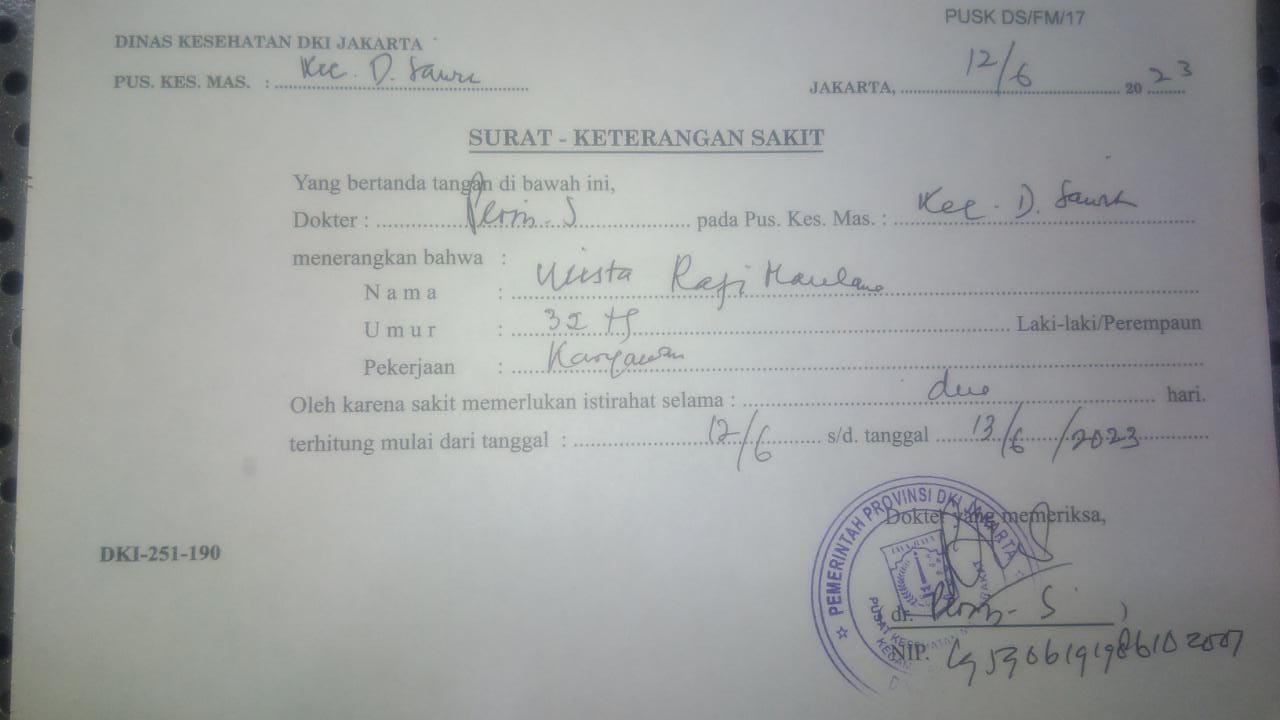 PUSK DS/FM/17
DINAS KESEHATAN DKI JAKARTA
PUS. KES. MAS. : Kec. D. Sawit
JAKARTA, 12/6 2023
SURAT - KETERANGAN SAKIT
Yang bertanda tangan di bawah ini,
Dokter : S pada Pus. Kes. Mas. : Kec. D. Sawit
menerangkan bahwa :
Nama : Rafi Maulana
Umur : 32 th Laki-laki/Perempaun
Pekerjaan : Karyawan
Oleh karena sakit memerlukan istirahat selama : dua hari.
terhitung mulai dari tanggal : 12/6 s/d. tanggal 13/6/2023
PEMERINTAH PROVINSI DKI JAKARTA
JAYA RAYA
PUSAT KESEHATAN
Dokter yang memeriksa,
DKI-251-190
dr. S
NIP.